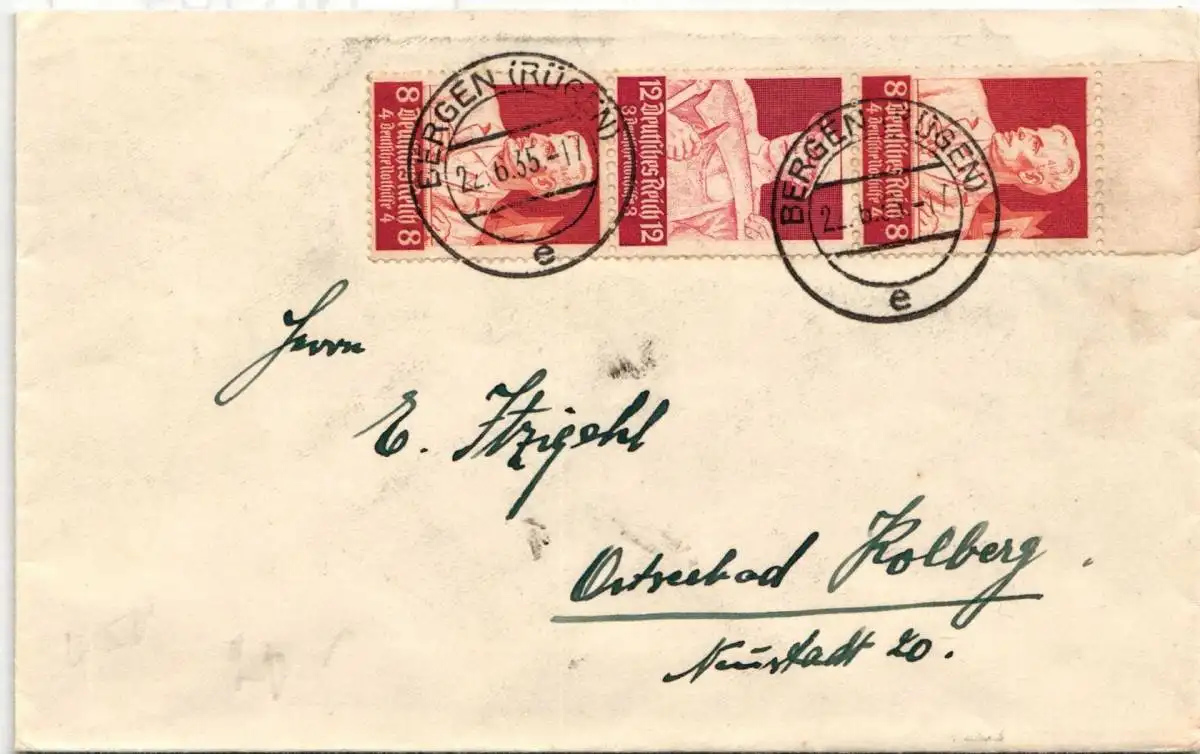 8 Deutsches Reich 8
4 Deutsche Nothilfe 4
12 Deutsches Reich 12
3 Deutsche Nothilfe 3
8 Deutsches Reich 8
4 Deutsche Nothilfe 4
BERGEN (RÜGEN)
22.6.35.-17
e
BERGEN (RÜGEN)
e
Herrn
E. Itzigehl
Ostseebad Kolberg.
Neustadt 20.